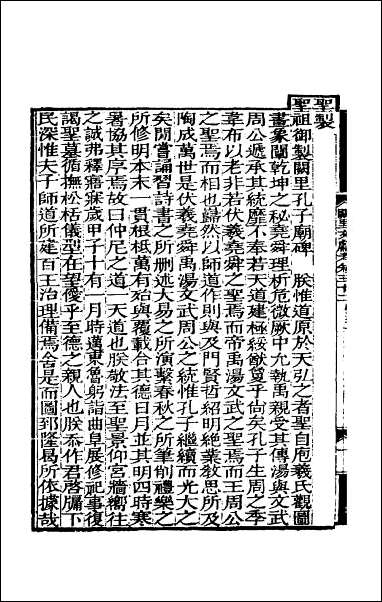 聖製
聖祖御製闕里孔子廟碑　朕惟道原於天弘之者聖自庖羲氏觀圖
畫象闡乾坤之秘堯舜理析危微厥中允執禹親受其傳湯與文武
周公遞承其統靡不奉若天道建極綏猷敻乎尚矣孔子生周之季
韋布以老非若伏羲堯舜之聖焉而帝禹湯文武之聖焉而王周公
之聖焉而相也巋然以師道作則與及門賢哲紹明絶業教思所及
陶成萬世是伏羲堯舜禹湯文武周公之統惟孔子繼續而光大之
矣間嘗誦習詩書之所删述大易之所演繫春秋之所筆削禮樂之
所修明本末一貫根柢萬有殆與覆載合其德日月並其明四時寒
暑協其序焉故曰仲尼之道一天道也朕敬法至聖景仰宮牆嚮往
之誠弗釋寤寐歲甲子十有一月時邁東魯躬詣曲阜展修祀事復
謁聖墓循撫松栝儀型在望僾乎至德之親人也朕忝作君啓牖下
民深惟夫子師道所建百王治理備焉舍是而圖郅隆易所依據哉